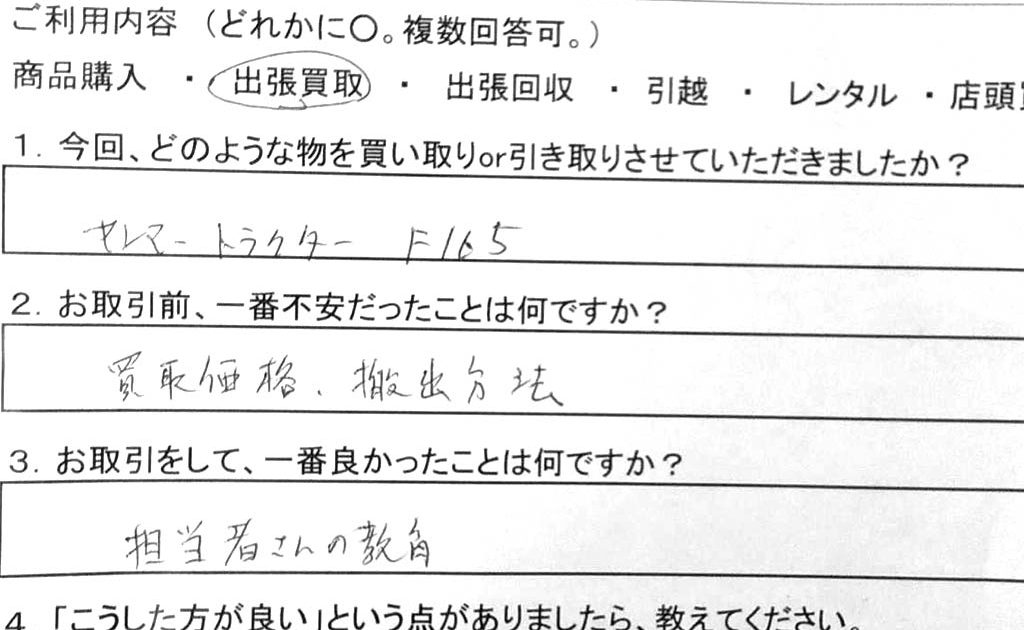 ご利用内容 (どれかに〇。複数回答可。)
商品購入 ・ 出張買取 ・ 出張回収 ・ 引越 ・ レンタル ・ 店頭
1. 今回、どのような物を買い取りor引き取りさせていただきましたか？
トラクター F165
2. お取引前、一番不安だったことは何ですか？
買取価格、搬出方法
3. お取引をして、一番良かったことは何ですか？
担当者さんの
4 「こうした方が良い」という点がありましたら、教えてください。